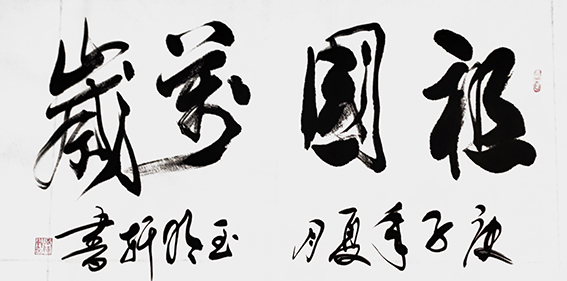 祖國萬歲
庚子年夏月玉明軒書